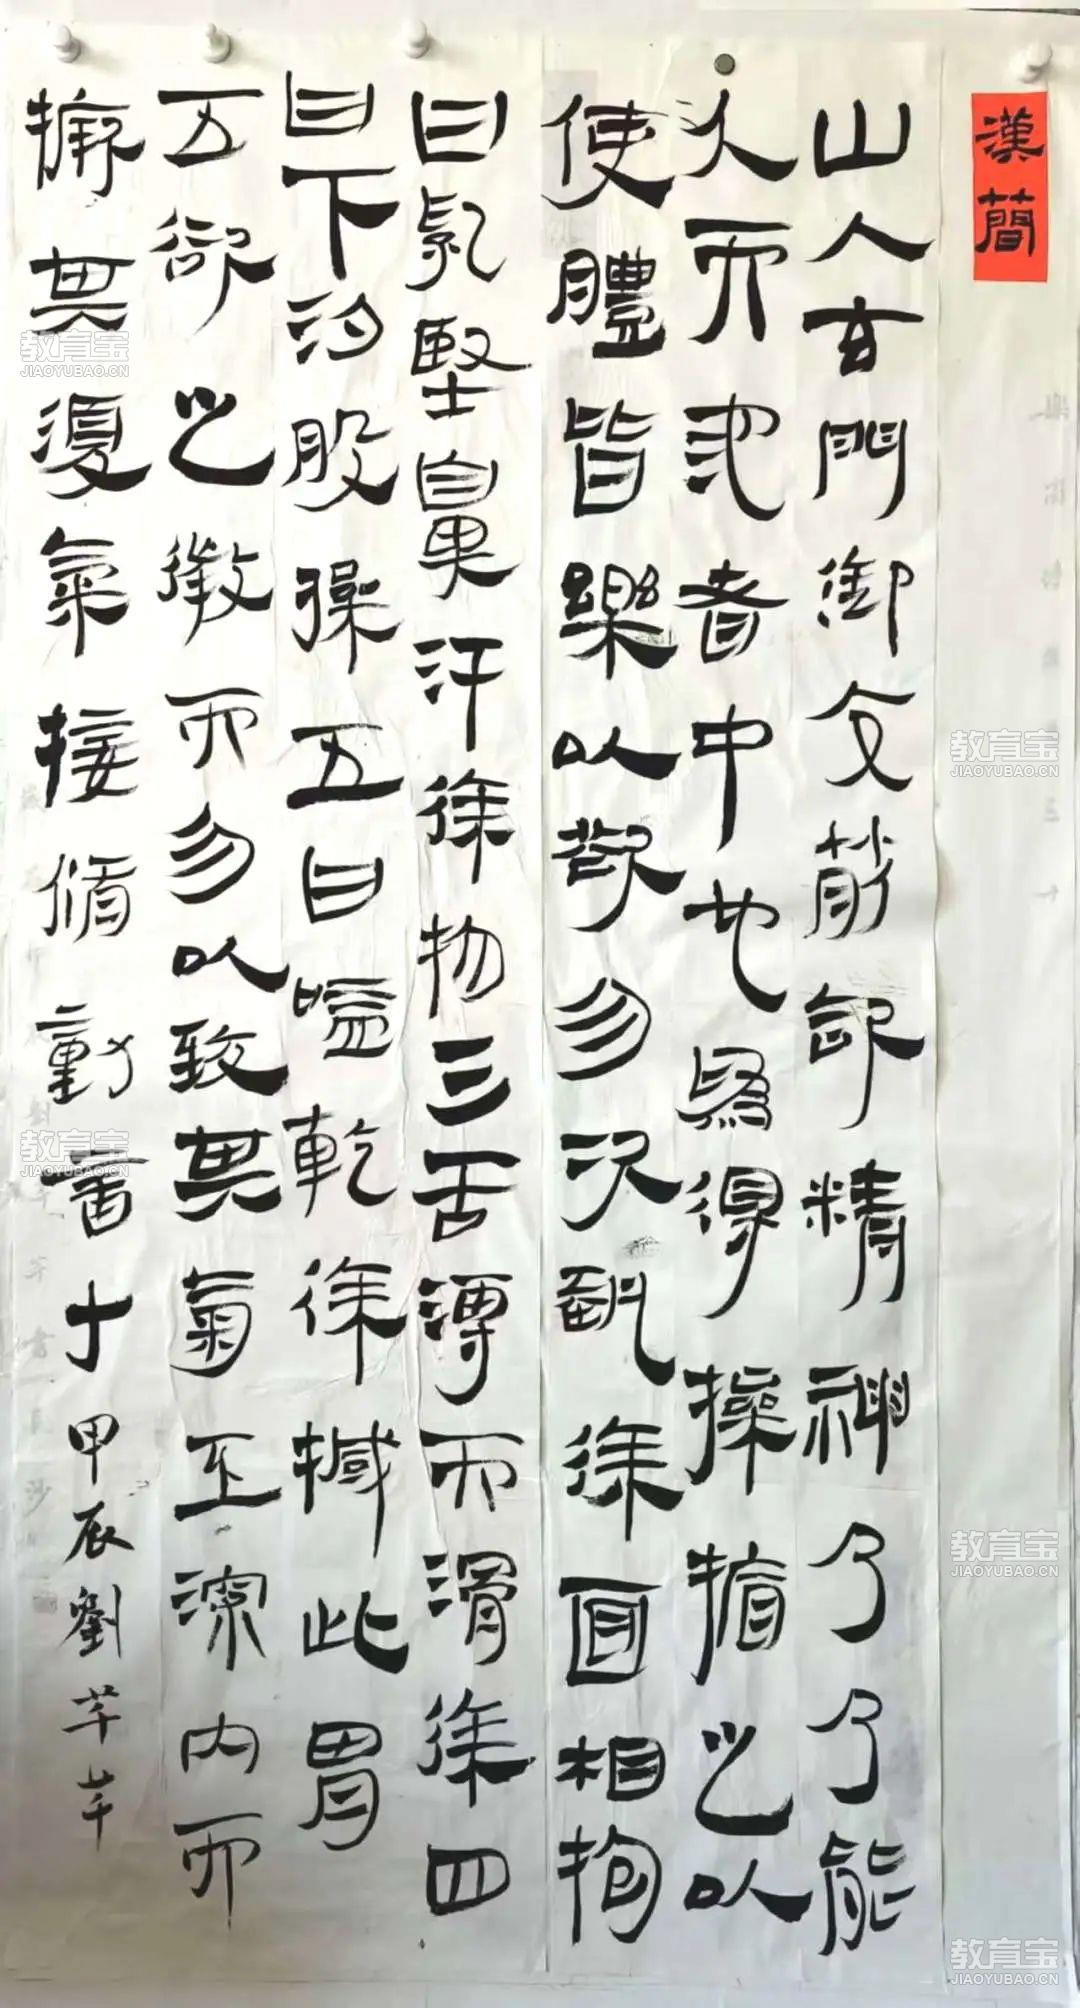 漢簡
山人玄門御交筋卻精神乃乃能
久而視者中也為得操揗之以
使體皆樂以欲勿次㪅徐面相抱
曰氣堅鼻汗徐物三舌溥而滑徐四
曰下汐股操五曰嗌乾徐撼此胃
五欲之徵而勿以致其氣至深內而
揗其復氣接脩動
甲辰劉芊芊
教育宝
JIAOYUBAO.CN
教育宝
JIAOYUBAO.CN
教育宝
JIAOYUBAO.CN
教育宝
JIAOYUBAO.CN
教育宝
JIAOYUBAO.CN